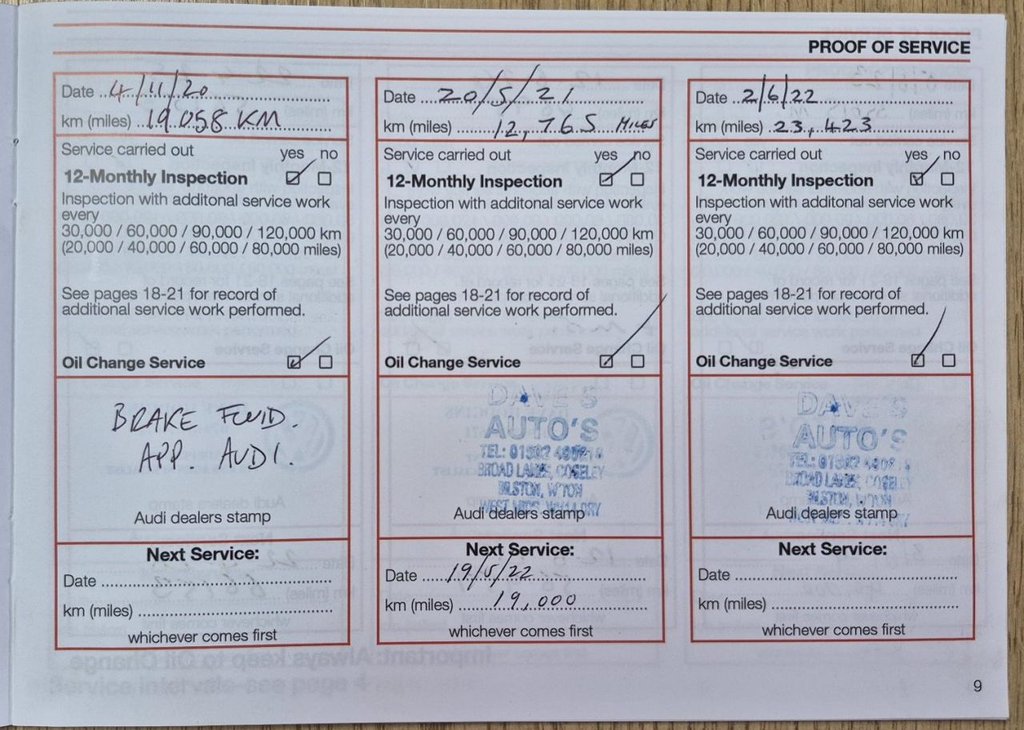 PROOF OF SERVICE
Date 4/11/20
km (miles) 19.058 KM
Service carried out yes no
12-Monthly Inspection
Inspection with additonal service work
every
30,000 / 60,000 / 90,000 / 120,000 km
(20,000 / 40,000 / 60,000 / 80,000 miles)
See pages 18-21 for record of
additional service work performed.
Oil Change Service
BRAKE FLUID.
APP. AUDI.
Audi dealers stamp
Next Service:
Date
km (miles)
whichever comes first
Date 20/5/21
km (miles) 12,765 MILES
Service carried out yes no
12-Monthly Inspection
Inspection with additonal service work
every
30,000 / 60,000 / 90,000 / 120,000 km
(20,000 / 40,000 / 60,000 / 80,000 miles)
See pages 18-21 for record of
additional service work performed.
Oil Change Service
DAVE'S
AUTO'S
TEL: 01902
BROAD LANES, COSELEY
BILSTON, W'TON
WEST MIDS
Audi dealers stamp
Next Service:
Date 19/5/22
km (miles) 19,000
whichever comes first
Date 2/6/22
km (miles) 23,423
Service carried out yes no
12-Monthly Inspection
Inspection with additonal service work
every
30,000 / 60,000 / 90,000 / 120,000 km
(20,000 / 40,000 / 60,000 / 80,000 miles)
See pages 18-21 for record of
additional service work performed.
Oil Change Service
DAVE'S
AUTO'S
TEL: 01902
BROAD LANES, COSELEY
BILSTON, W'TON
Audi dealers stamp
Next Service:
Date
km (miles)
whichever comes first
9